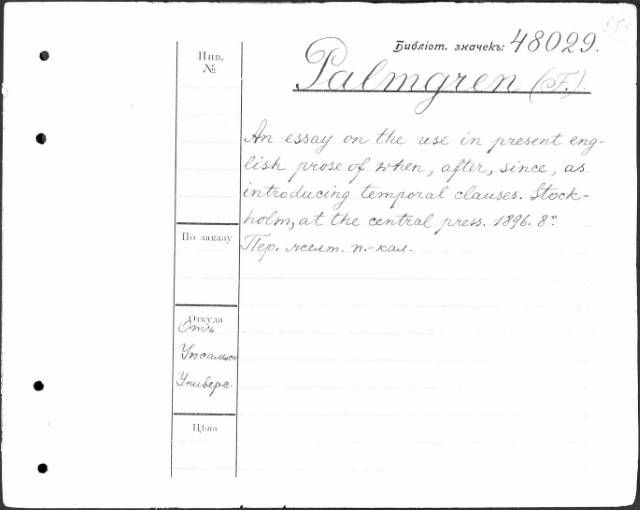 Библіот. значекъ: 48029.
Palmgren (F.)
An essay on the use in present eng-
lish prose of when, after, since, as
introducing temporal clauses. Stock-
holm, at the central press. 1896. 8º
Пер. желт. п.-кал.
Инв.
№
По заказу
Откуда
Отъ
Упсальск
Универс.
Цѣна